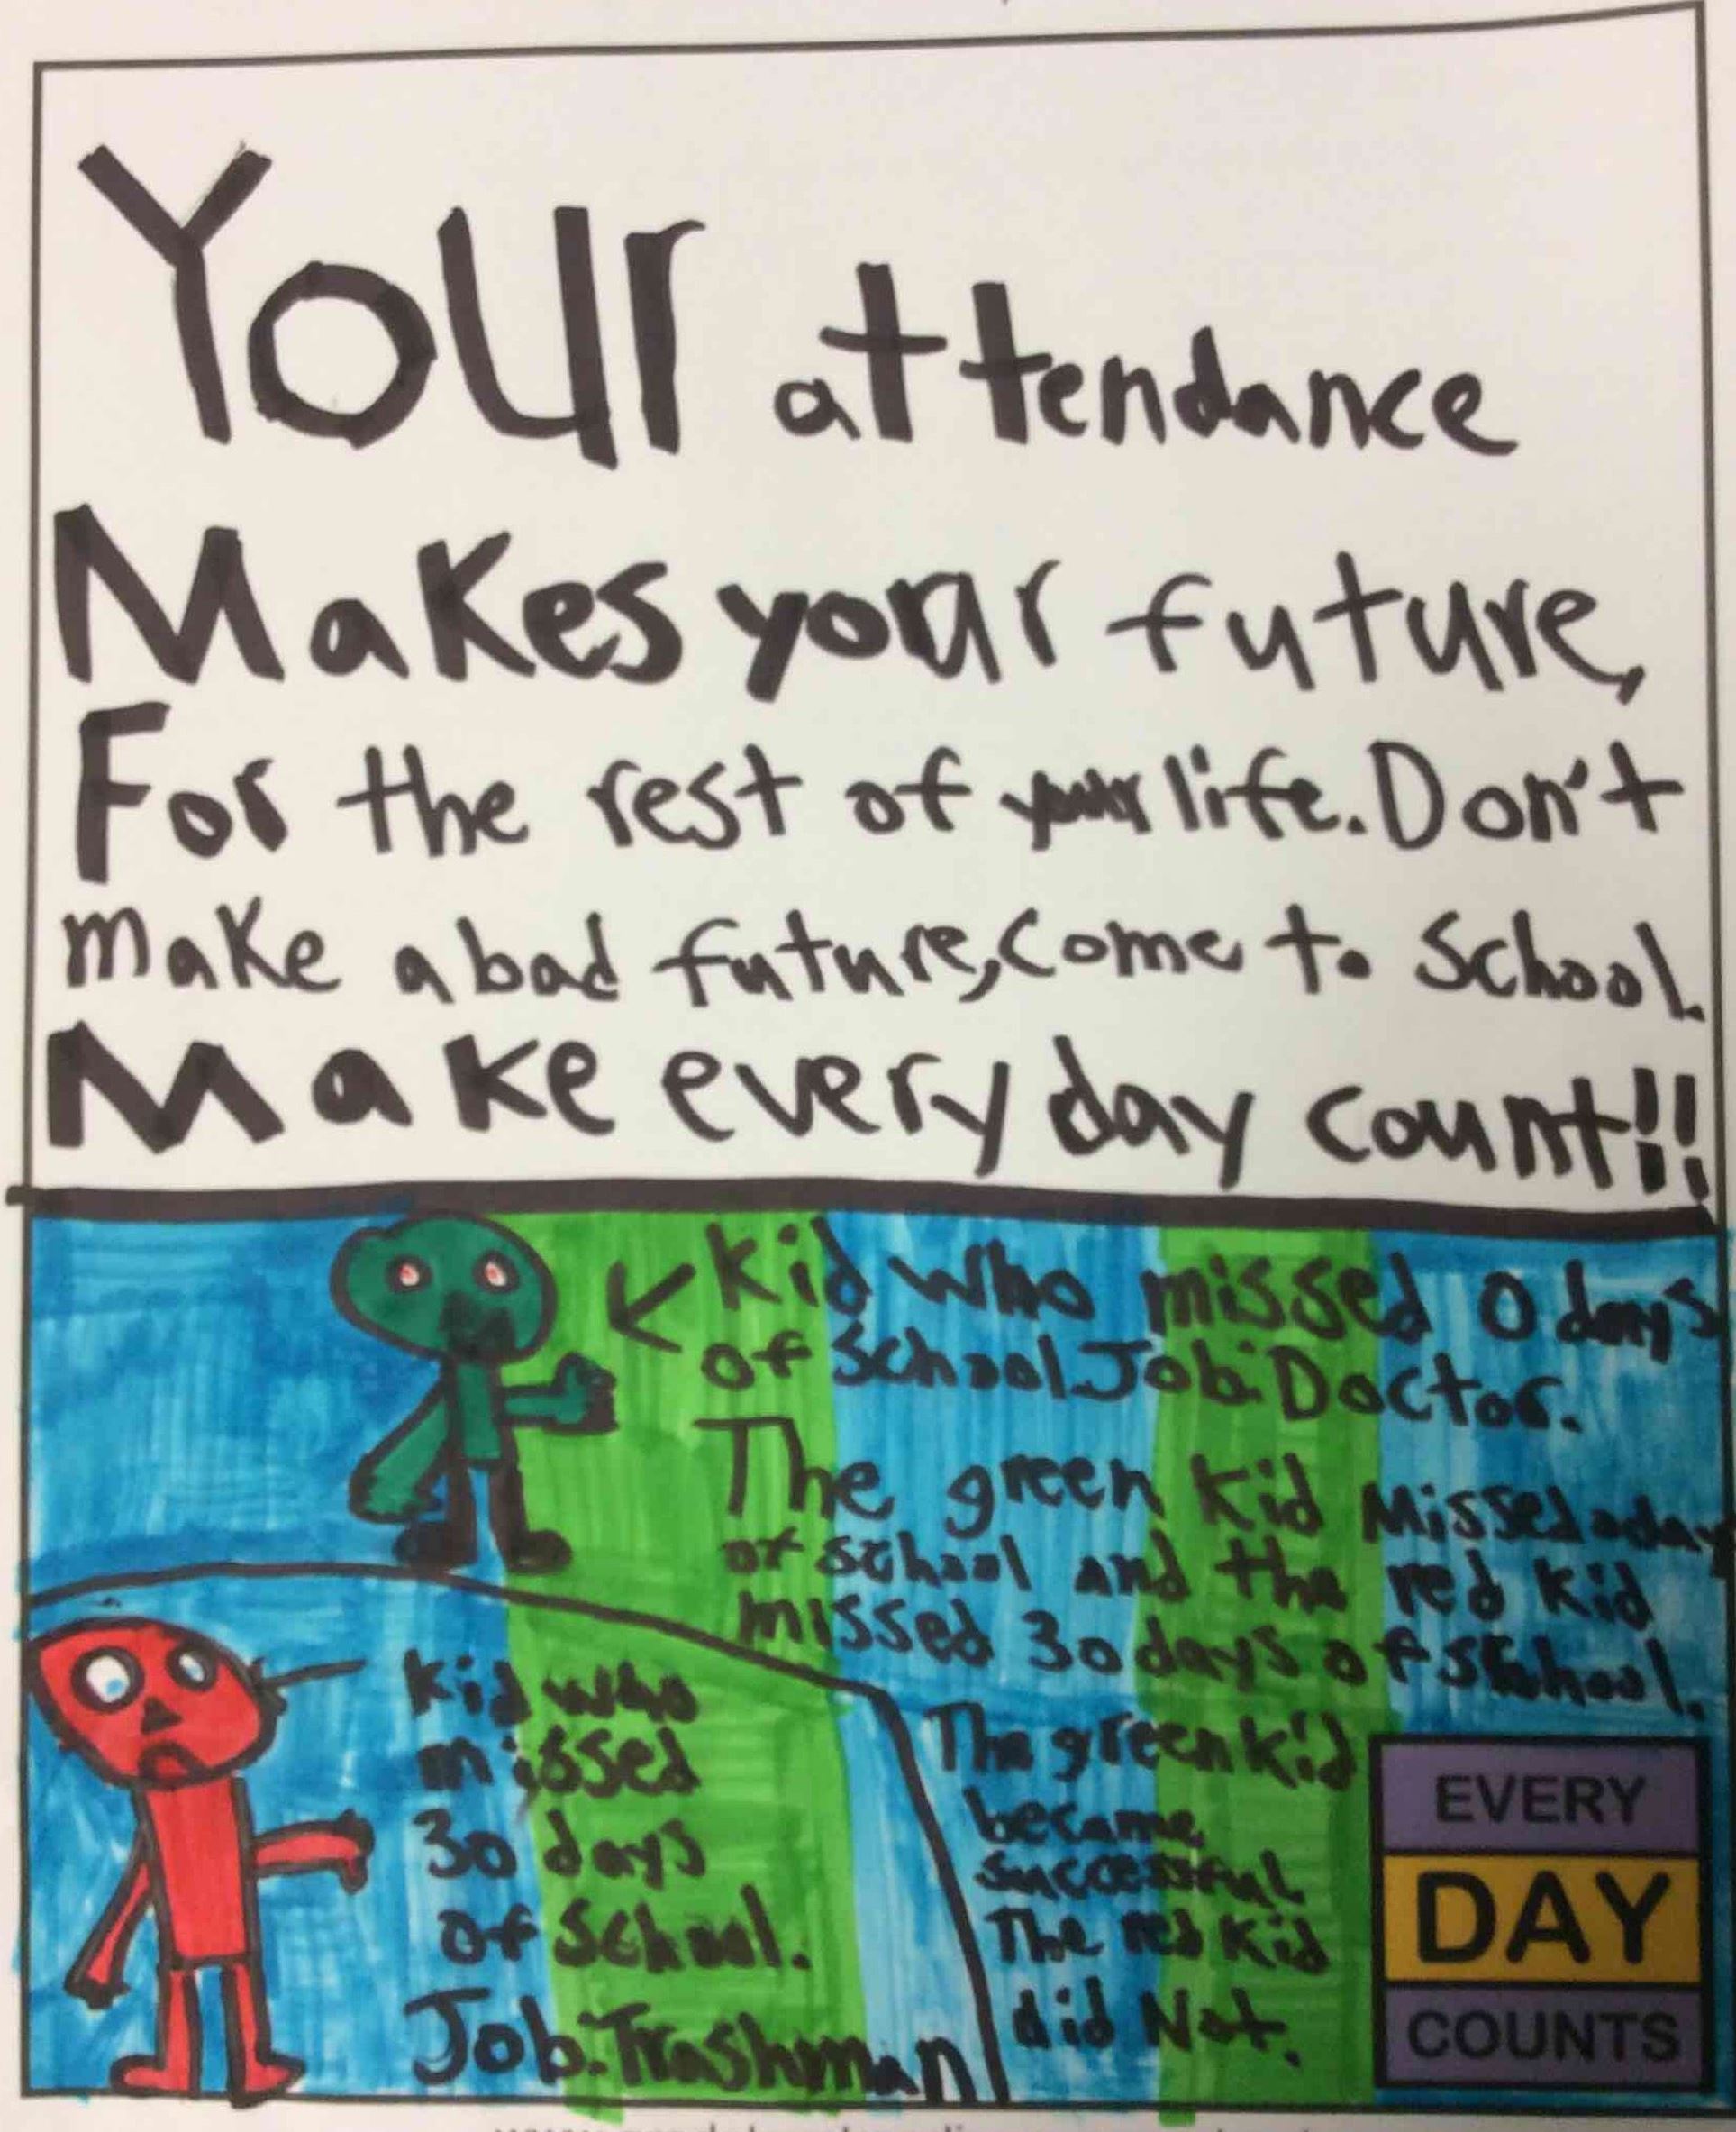 Your attendance
Makes your future,
For the rest of your life. Don't
make a bad future, come to School.
Make every day count!!
Kid who missed 0 days
of School. Job: Doctor.
The green Kid Missed 0 day
of school and the red kid
missed 30 days of School.
Kid who
missed
30 days
of School.
Job: Trashman
The green kid
became
successful
The red Kid
did Not.
EVERY
DAY
COUNTS